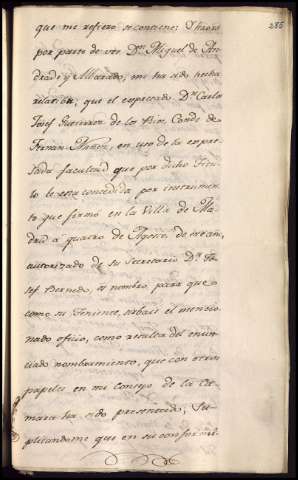 285
que me refiero se contiene: Y haora
por parte de vos Dn. Miguel de An-
drade y Albarado, me ha sido hecha
relacion, que el expresado Dn. Carlos
Josef Gutierrez de los Rios, Conde de
Fernan-Nuñez, en uso de la expre-
sada facultad que por dicho Titu-
lo le esta concedida por instrumen-
to que firmó en la Villa de Ma-
drid a quatro de Agosto de este año,
autorizado de su Secretario Dn. Jo-
sef Bermudo, os nombró para que
como su Teniente, sirbais el mencio-
nado oficio, como resulta del enun-
ciado nombramiento, que con otros
papeles en mi Consejo de la Ca-
mara ha sido presentado; Su-
plicandome que en su conformi-